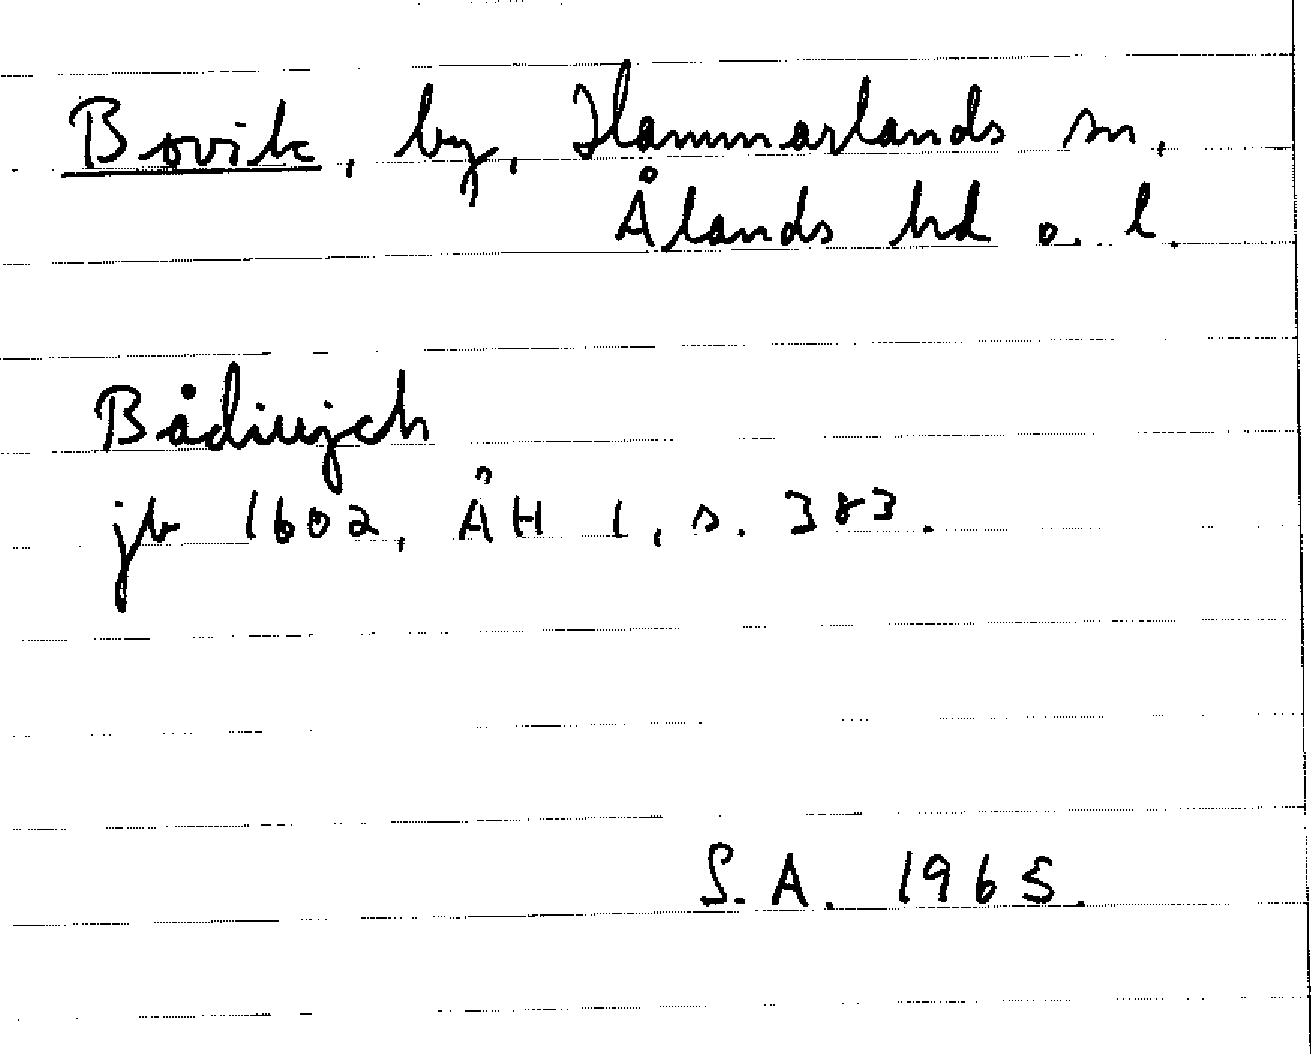 Bovik, by, Hammarlands sn,
Ålands hd o. l.
Bådiwjch
jb 1602, ÅH 1, s. 383.
S.A. 1965.